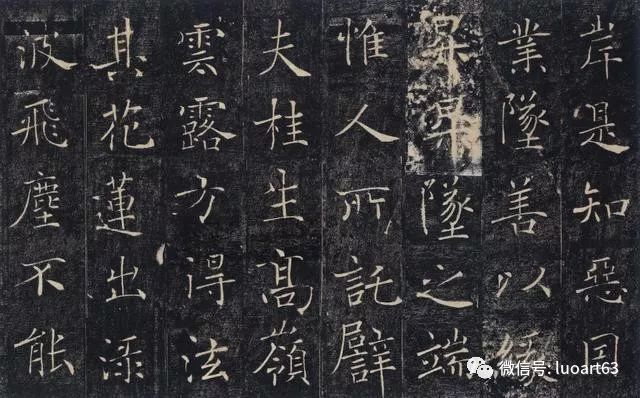 岸是知惡因
業墜善以緣
昇昇墜之端
惟人所託譬
夫桂生髙嶺
雲露方得泫
其花蓮出淥
波飛塵不能
微信号: luoart63